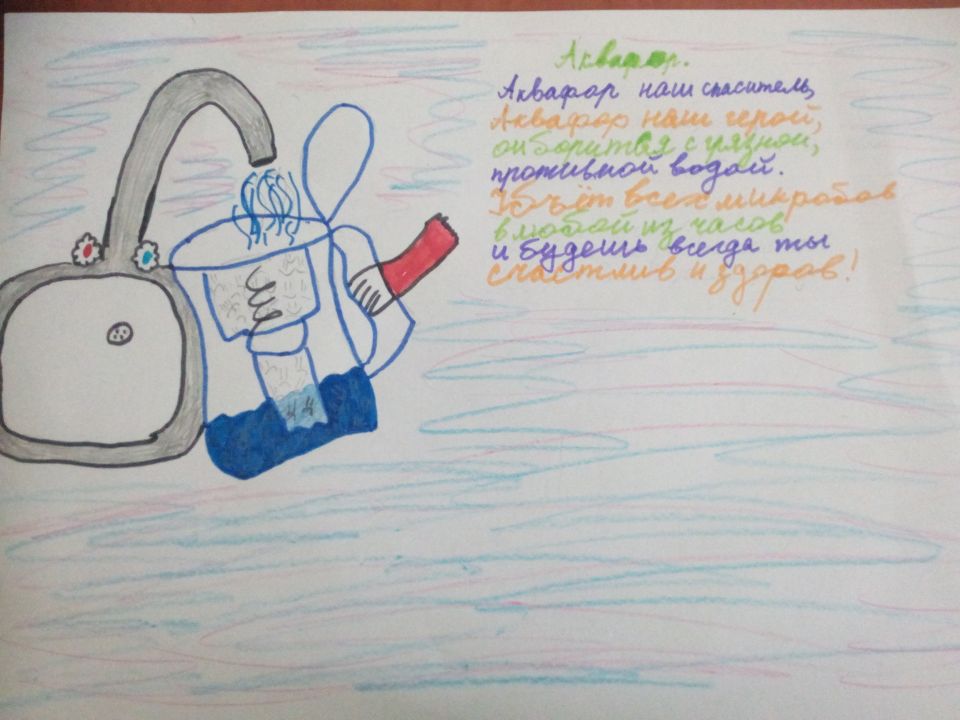 Аквафор.
Аквафор наш спаситель,
Аквафор наш герой,
он борится с грязной,
противной водой.
Убъёт всех микробов
в любой из часов
и будешь всегда ты
счастлив и здоров!